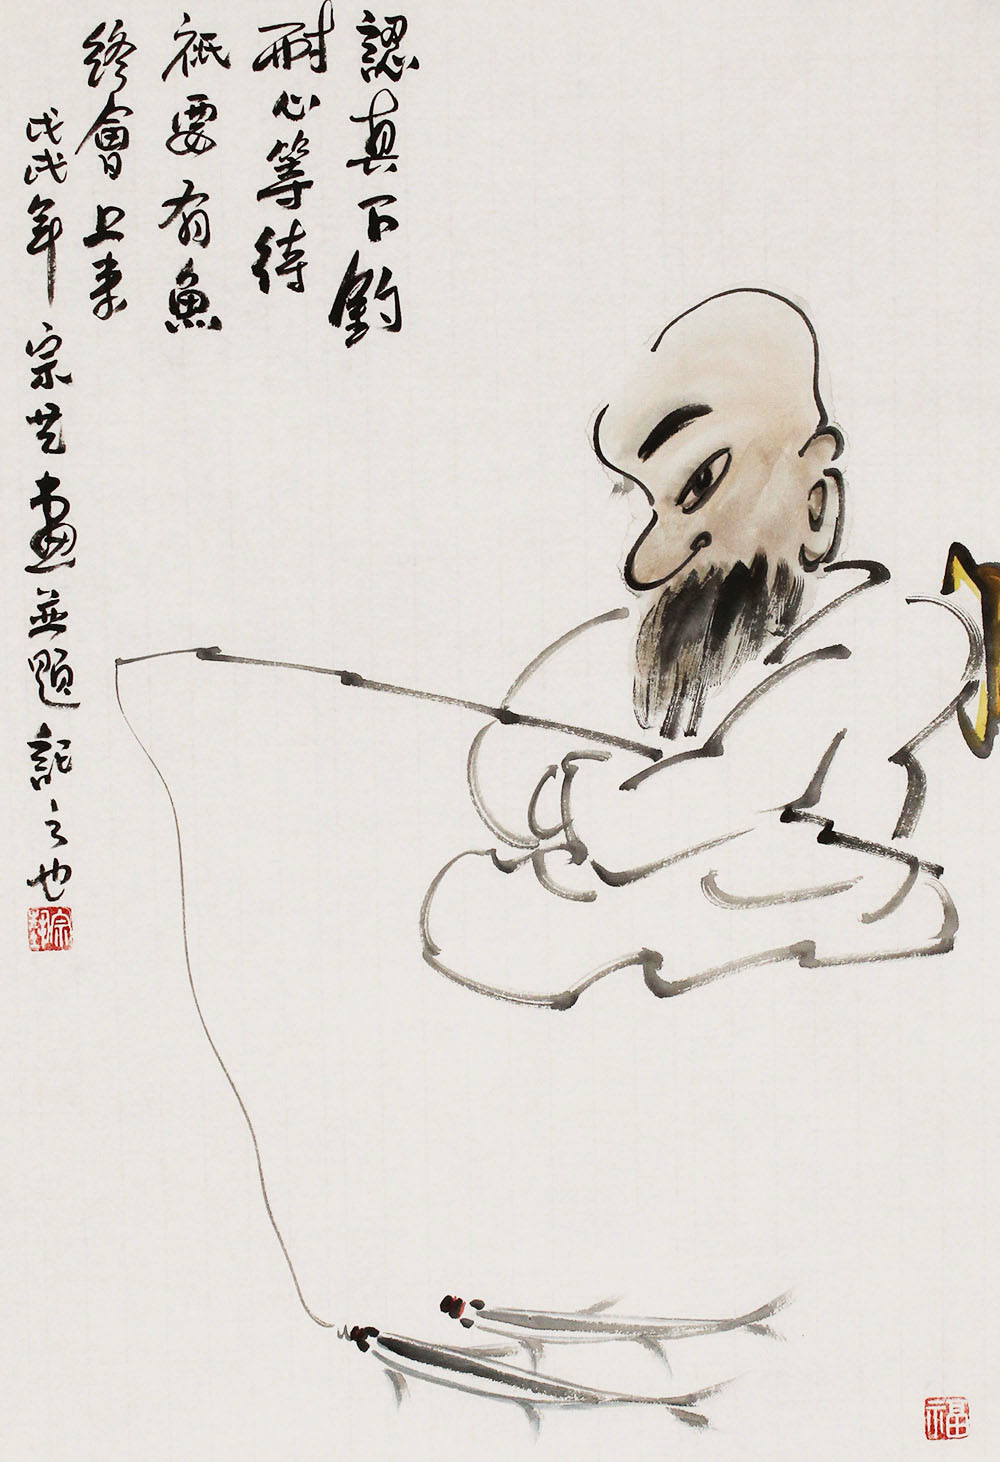 認真下釣
耐心等待
祇要有魚
終會上来
戊戌年 宗艺畫並題記之也
福